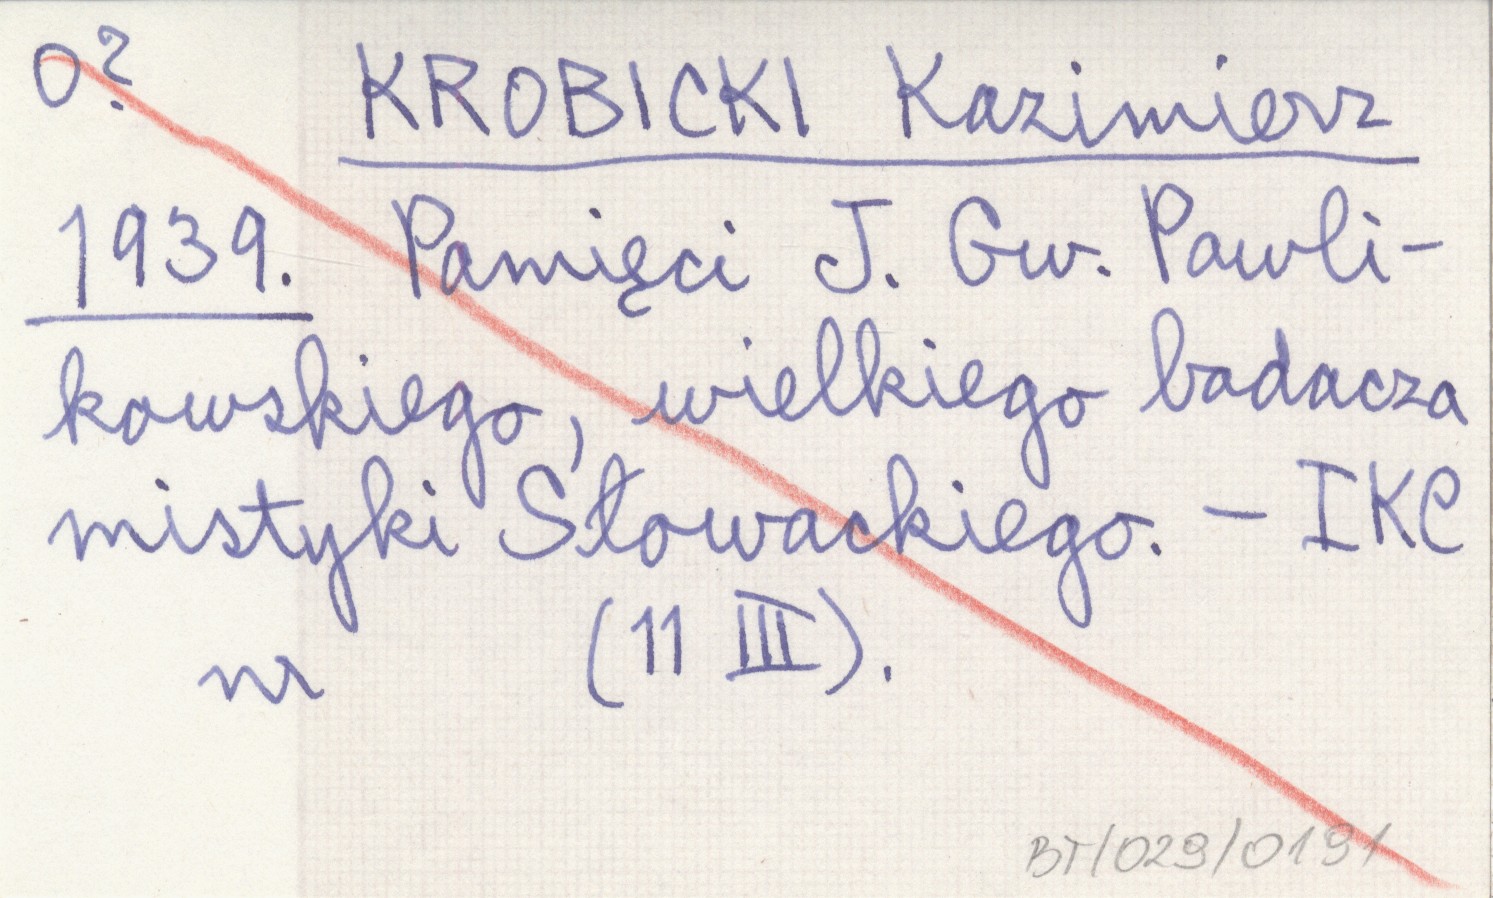 O? KROBICKI Kazimierz
1939. Pamięci J. Gw. Pawli-
kowskiego, wielkiego badacza
mistyki Słowackiego. – IKC
nr (11 III).
BT/029/0191